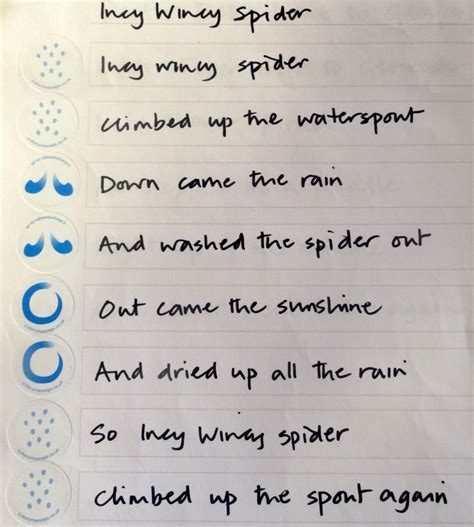 Incy Wincy Spider
Incy wincy spider
Climbed up the waterspout
Down came the rain
And washed the spider out
Out came the sunshine
And dried up all the rain
So Incy Wincy spider
Climbed up the spout again